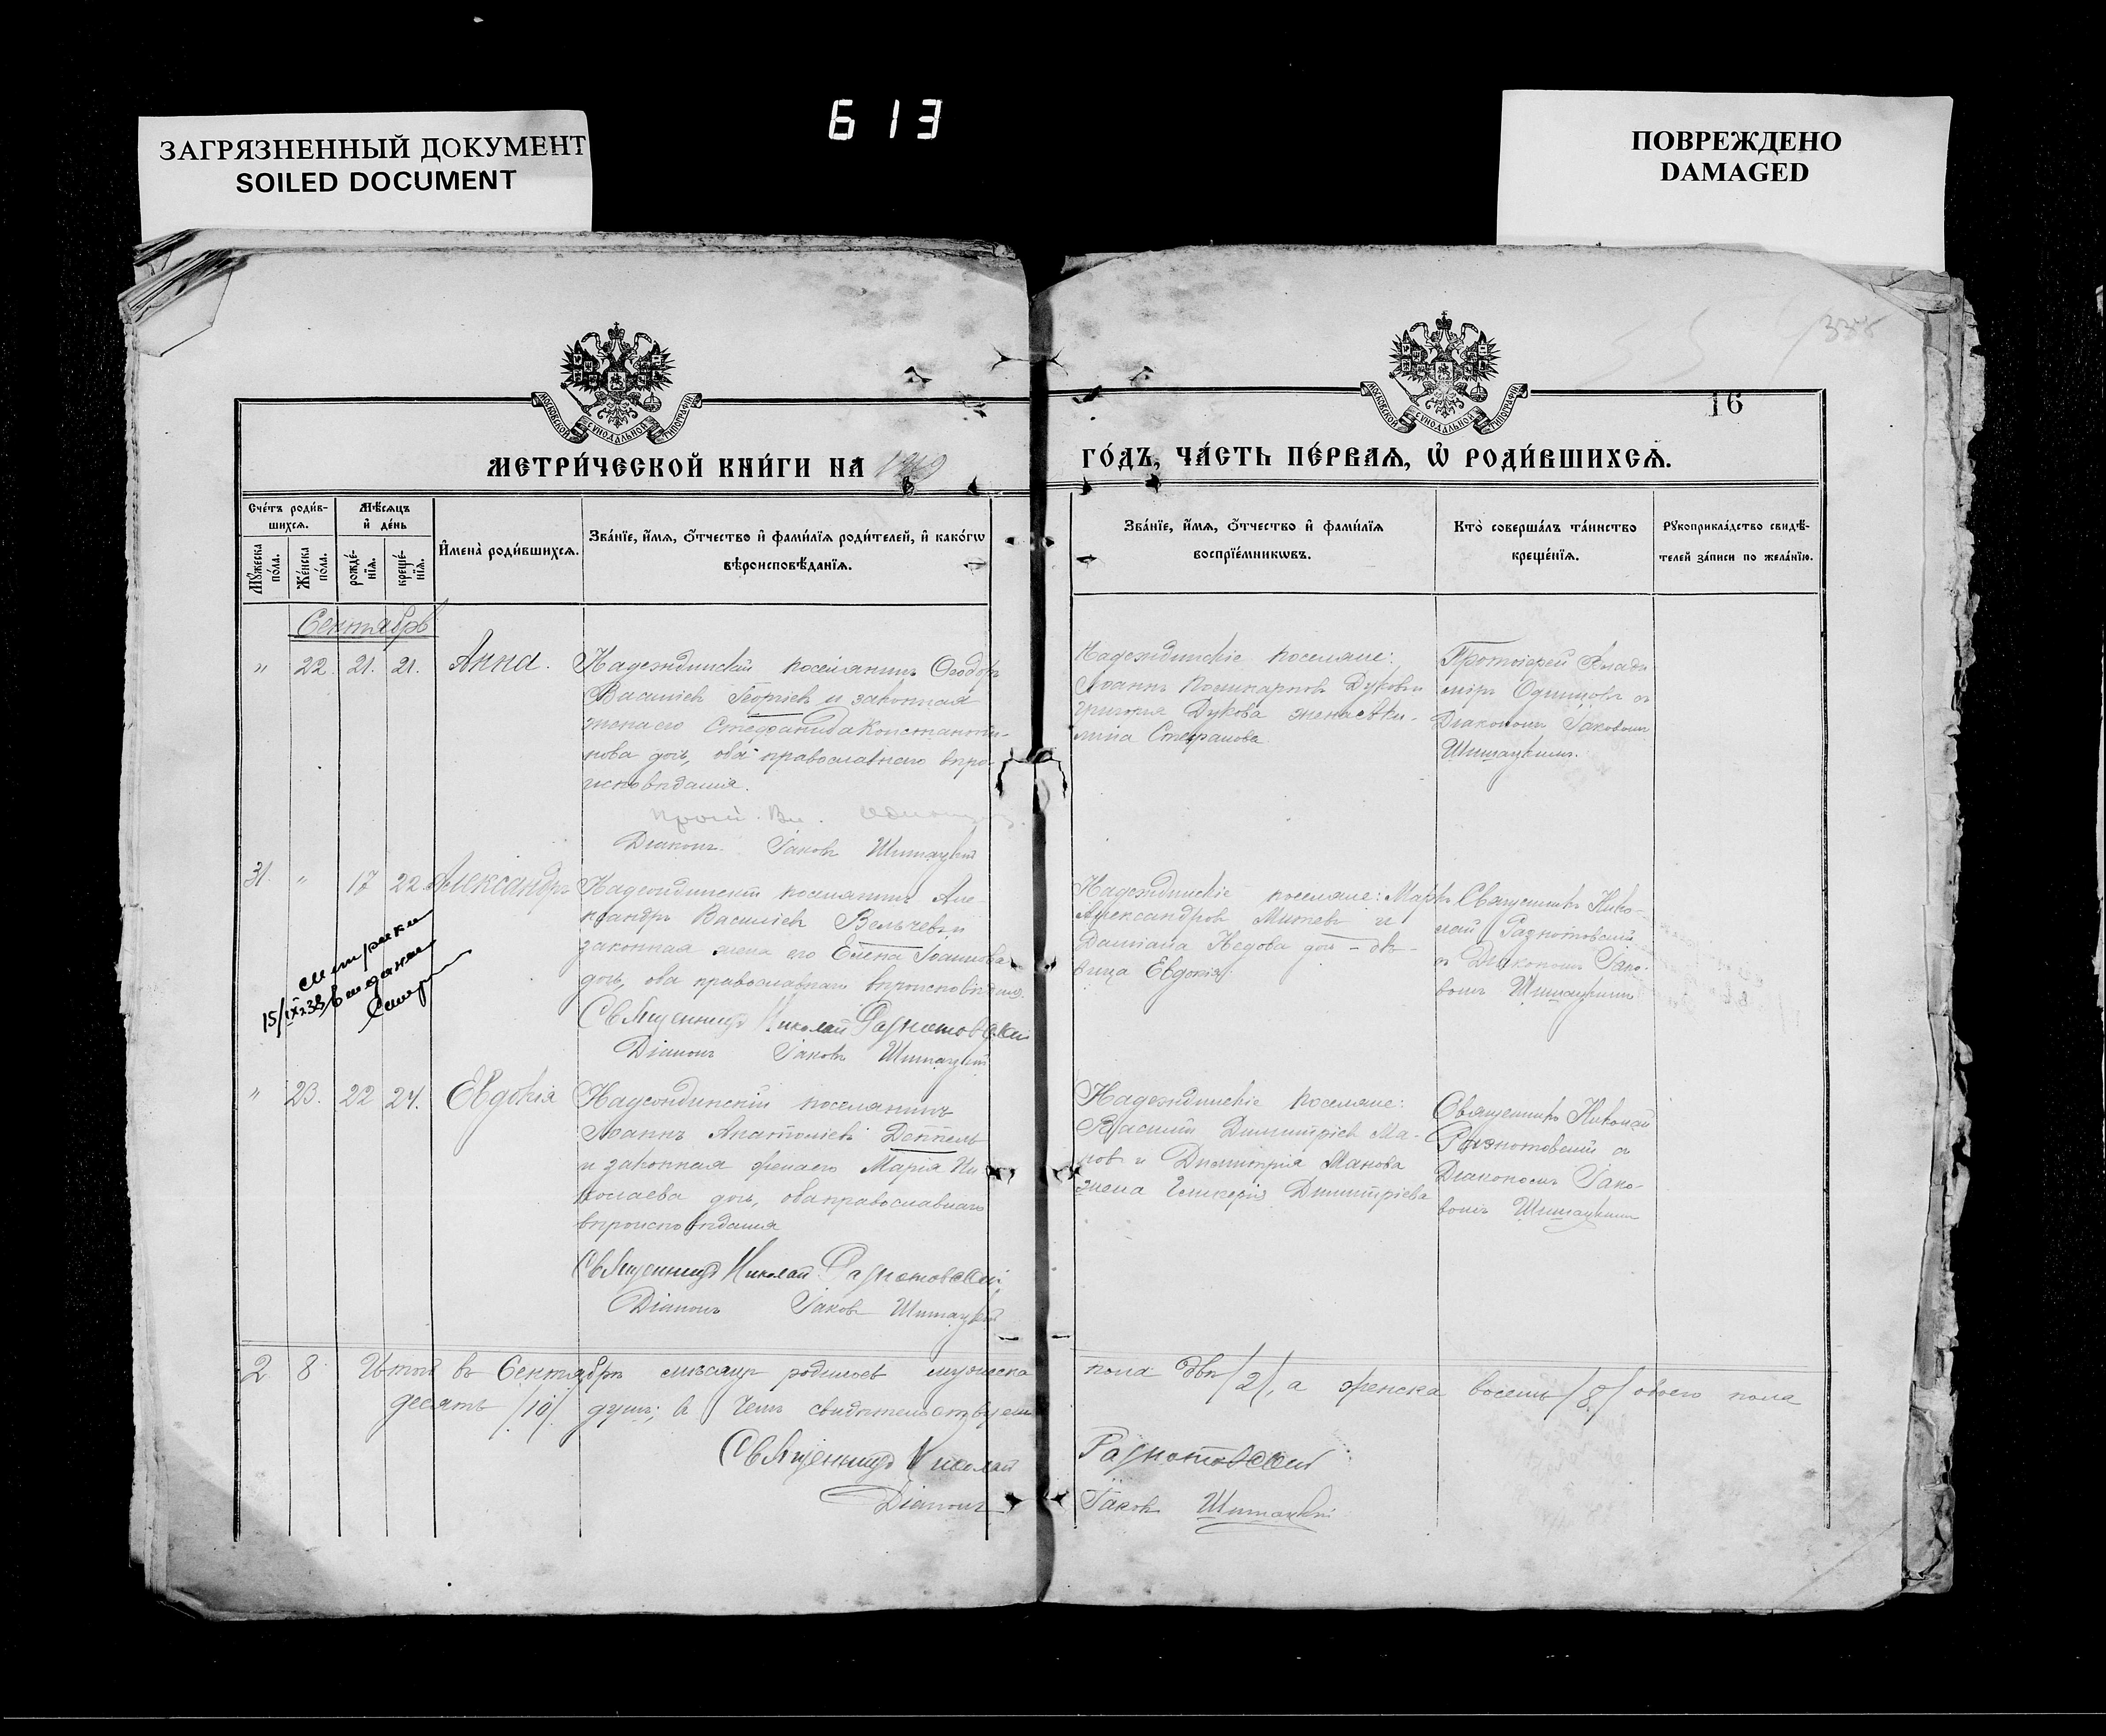 613
ЗАГРЯЗНЕННЫЙ ДОКУМЕНТ
SOILED DOCUMENT
ПОВРЕЖДЕНО
DAMAGED
338
16
МОСКОВСКОЙ СУНОДАЛЬНОЙ ТИПОГРАФІИ
МОСКОВСКОЙ СУНОДАЛЬНОЙ ТИПОГРАФІИ
МЕТРИ́ЧЕСКОЙ КНИ́ГИ НА
ГО́ДЪ, ЧА́СТЬ ПЕ́РВАЯ, Ѡ РОДИ́ВШИХСЯ.
Сче́тъ роди́в-
шихся.
Му́жеска по́ла.
Же́нска по́ла.
Мѣ́сяцъ
и де́нь
рожде́-
нїя.
креще́-
нїя.
Имена̀ роди́вшихся.
Зва́нїе, и́мя, ѻ́тчество и фами́лїя роди́телей, и како́гѡ
вѣроисповѣ́данїя.
Зва́нїе, и́мя, ѻ́тчество и фами́лїя
воспрїе́мникѡвъ.
Кто̀ соверша́лъ та́инство
креще́нїя.
Рукоприкла́дство свидѣ́-
телей за́писи по жела́нїю.
Сентябрь
" 22. 21. 21. Анна.
Надеждинскій поселянинъ Ѳеодоръ
Василіевъ Георгіевъ и законная
жена его Стефанида Константи-
нова дочь, оба православнаго вѣро-
исповѣданія.
Діаконъ Іаковъ Шимацкій
Надеждинскіе поселяне:
Григорія Дукова жена
Стефанова
Протоіерей Влади-
міръ Одинцовъ съ
Діакономъ Іаковомъ
Шимацкимъ.
31. " 17 22. Александръ
Надеждинскій поселянинъ Але-
ксандръ Василіевъ Вельчевъ и
законная жена его Елена Іоаннова
дочь, оба православнаго вѣроисповѣданія.
Священникъ Николай Разнотовскій
Діаконъ Іаковъ Шимацкій
Надеждинскіе поселяне: Маркъ
Александровъ Митевъ и
Даміана Недова дочь - дѣ-
вица Евдокія.
Священникъ Нико-
лай Разнотовскій
съ Діакономъ Іако-
вомъ Шимацкимъ
метрики
15/IX-38 выданы
" 23. 22 24. Евдокія
Надеждинскій поселянинъ
Іоаннъ Анатоліевъ Деппель
и законная жена его Марія Ни-
колаева дочь, оба православнаго
вѣроисповѣданія
Священникъ Николай Разнотовскій
Діаконъ Іаковъ Шимацкій
Надеждинскіе поселяне:
Василій Димитріевъ Ма-
новъ и Димитрія Манова
жена Гликерія Димитріева
Священникъ Николай
Разнотовскій съ
Діакономъ Іако-
вомъ Шимацкимъ
2 8 Итого въ Сентябрѣ мѣсяцѣ родилось мужеска пола два /2/, а женска восемь /8/ обоего пола
десять /10/ душъ; въ чемъ свидѣтельствуемъ
Священникъ Николай Разнотовскій
Діаконъ Іаковъ Шимацкій